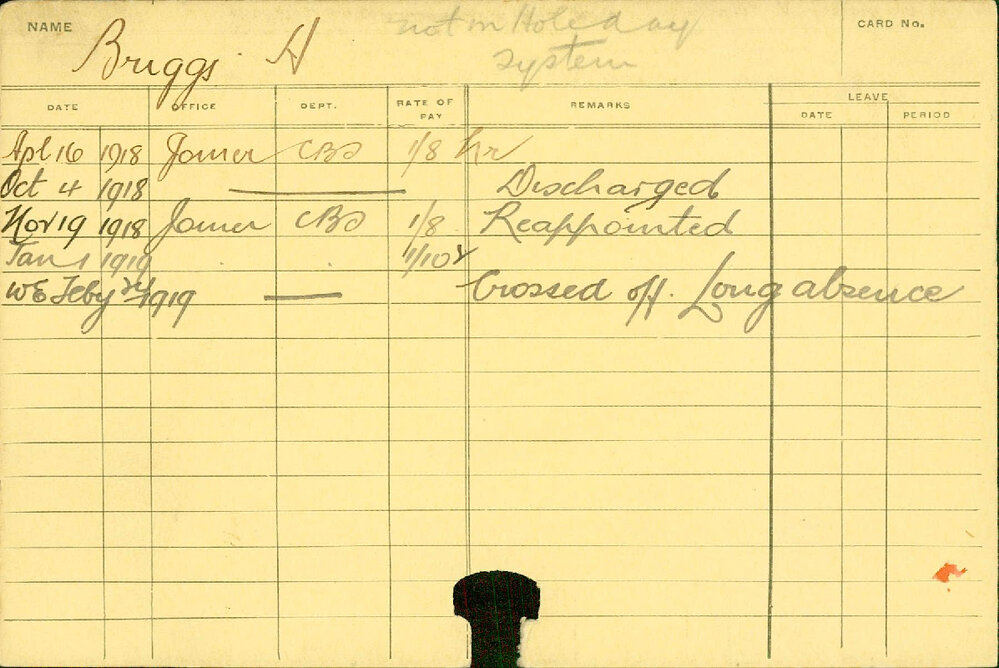 NAME Briggs H not in Holeday CARD No.
system
DATE OFFICE DEPT. RATE OF PAY REMARKS LEAVE
DATE PERIOD
Apl 16 1918 Joiner CBD 1/8 hr
Oct 4 1918 Discharged
Nov 19 1918 Joiner CBD 1/8 Reappointed
Jan 1 1919 1/10
WE Feby 1919 Crossed off. Long absence